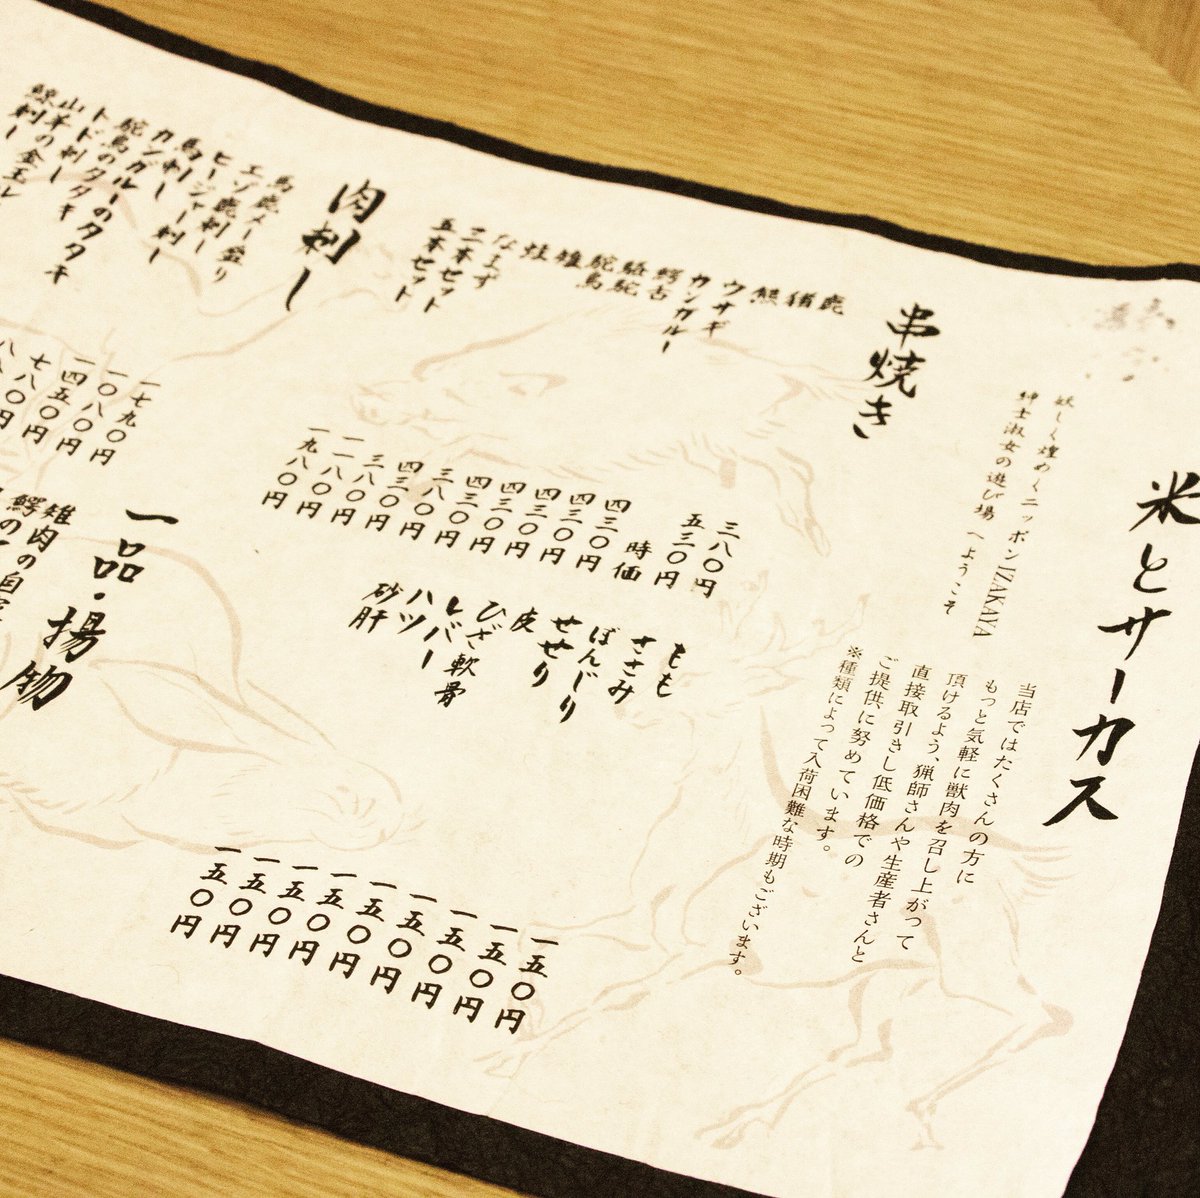 米とサーカス
妖しく煌めくニッポンIZAKAYA
紳士淑女の遊び場 へようこそ
当店ではたくさんの方に
もっと気軽に獣肉を召し上がって
頂けるよう、猟師さんや生産者さんと
直接取引きし低価格での
ご提供に努めています。
※種類によって入荷困難な時期もございます。
串焼き
鹿 三八〇円
猪 五三〇円
熊 時価
ウサギ 四三〇円
カンガルー 四三〇円
鰐舌 四三〇円
駱駝 四三〇円
駝鳥 四三〇円
雉 三八〇円
蛙 四三〇円
なまず 三八〇円
三本セット 一一八〇円
五本セット 一九八〇円
もも 一五〇円
ささみ 一五〇円
ぼんじり 一五〇円
せせり 一五〇円
皮 一五〇円
ひざ軟骨 一五〇円
レバー 一五〇円
ハツ 一五〇円
砂肝 一五〇円
肉刺し
馬鹿メー盛り 一七九〇円
エゾ鹿刺し 一〇八〇円
ヒージャー刺し 一四五〇円
馬刺し 七八〇円
カンガルーのタタキ
駝鳥のタタキ
トド刺し
山羊の金玉
鯨刺し
一品・揚物
雉肉の自
鰐の